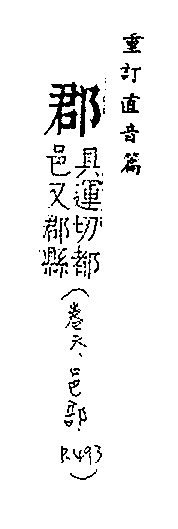 重訂直音篇
郡
具運切都
邑又郡縣
(卷六、邑部、P.493)